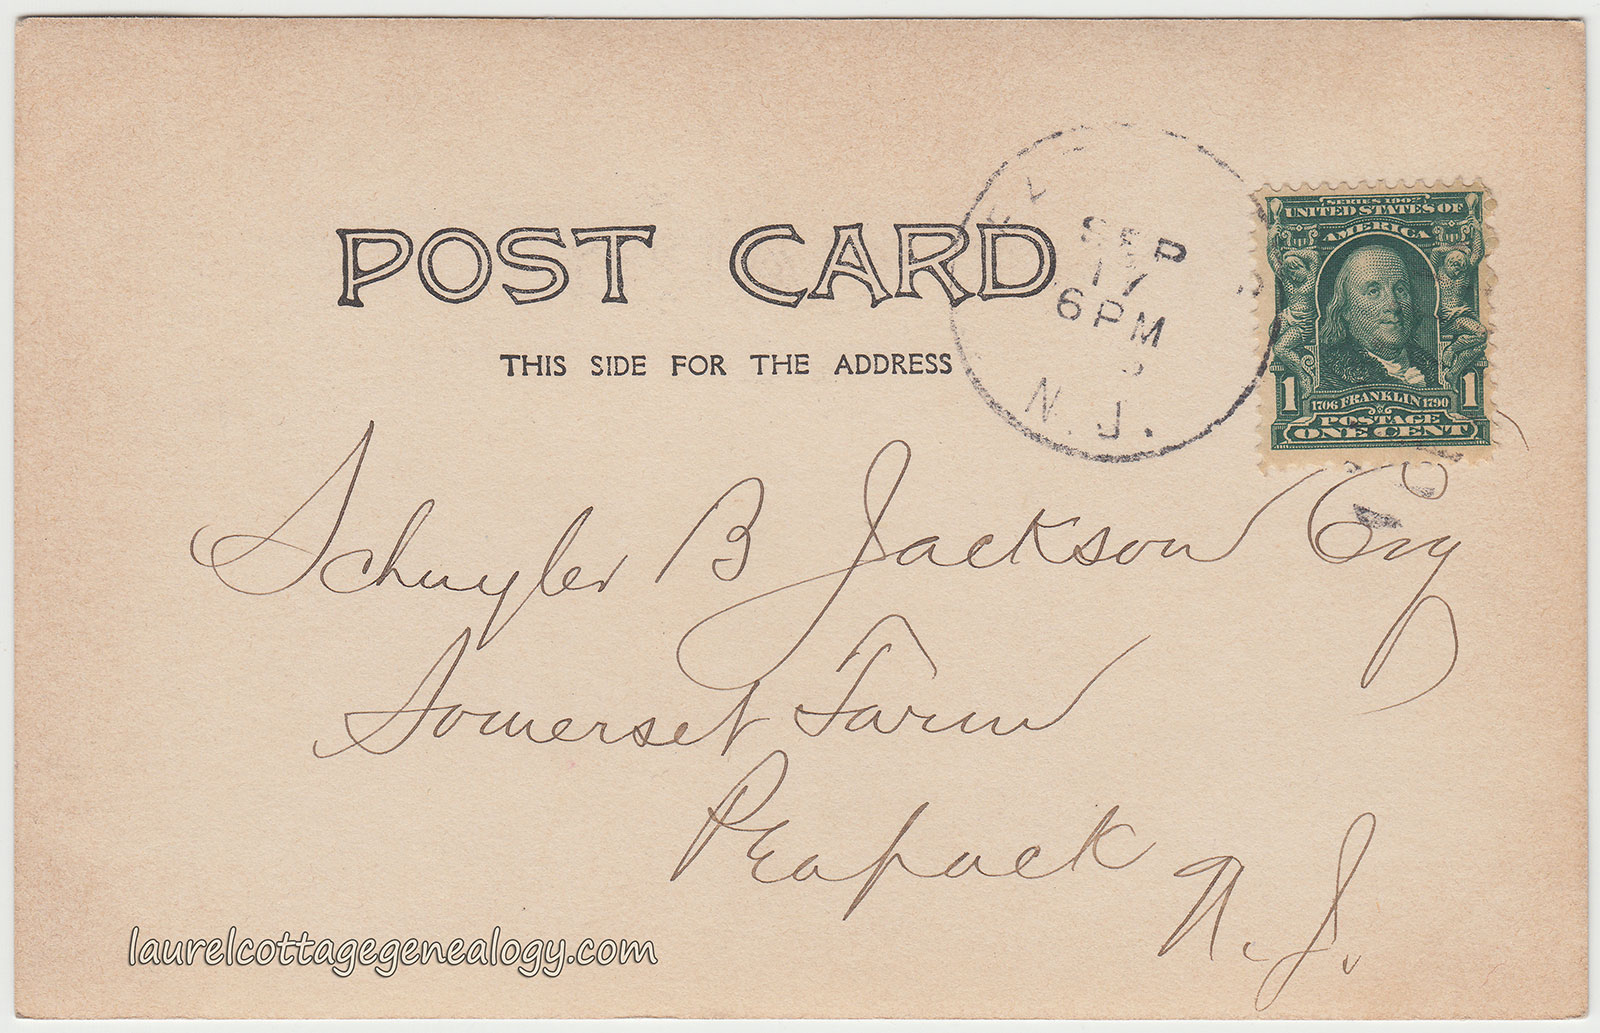 POST CARD
THIS SIDE FOR THE ADDRESS
SEP
17
6 PM
N.J.
SERIES 1902
UNITED STATES OF
AMERICA
1 1
1706 FRANKLIN 1790
POSTAGE
ONE CENT
Schuyler B Jackson Esq
Somerset Farm
Peapack
N. J.
laurelcottagegenealogy.com